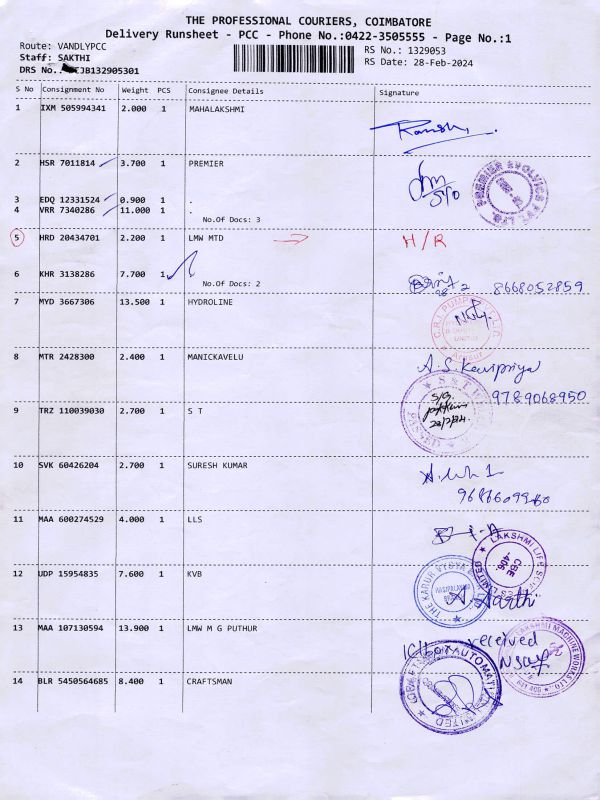 THE PROFESSIONAL COURIERS, COIMBATORE
Delivery Runsheet - PCC - Phone No.:0422-3505555 - Page No.:1
Route: VANDLYPCC
RS No.: 1329053
Staff: SAKTHI
RS Date: 28-Feb-2024
DRS No.: JB132905301
S No Consignment No Weight PCS Consignee Details Signature
1 IXM 505994341 2.000 1 MAHALAKSHMI
2 HSR 7011814 3.700 1 PREMIER
3 EDQ 12331524 0.900 1 .
4 VRR 7340286 11.000 1 .
No.Of Docs: 3
5 HRD 20434701 2.200 1 LMW MTD → H/R
6 KHR 3138286 7.700 1
No.Of Docs: 2
8668052859
7 MYD 3667306 13.500 1 HYDROLINE
8 MTR 2428300 2.400 1 MANICKAVELU
A.S. Kavipriya
9789068950
9 TRZ 110039030 2.700 1 S T
28/2/24
10 SVK 60426204 2.700 1 SURESH KUMAR
11 MAA 600274529 4.000 1 LLS
LAKSHMI LIFE
CBE
-406.
12 UDP 15954835 7.600 1 KVB
THE KARUR VYSYA
A. Aarthi
13 MAA 107130594 13.900 1 LMW M G PUTHUR
received
14 BLR 5450564685 8.400 1 CRAFTSMAN